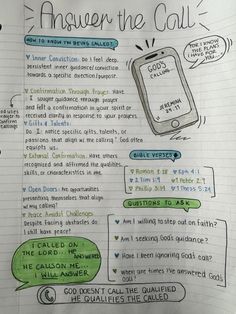 Answer the Call
HOW TO KNOW I'M BEING CALLED?
Inner Conviction: Do I feel deep,
persistent inner guidance conviction
towards a specific direction/purpose.
Confirmation Through Prayer: Have
I sought guidance through prayer
and felt a confirmation in your spirit or
received clarity in response to your prayers.
Gifts & Talents:
Do I notice specific gifts, talents, or
passions that align w/ the calling? God often
equips us.
External Confirmation: Have others
recognized and affirmed the qualities,
skills, or characteristics in me.
Open Doors: the opportunities
presenting themselves that align
w/ my calling?
Peace Amidst Challenges
Despite facing obstacles do
I still have peace?
I CALLED ON
THE LORD... HE ANSWERED
HE CALLS ON ME...
I WILL ANSWER
GOD'S
CALLING...
JEREMIAH
29:11
"FOR I KNOW
THE PLANS
I HAVE FOR
YOU..."
BIBLE VERSES
Romans 1:28
Eph 4:1
2 Tim 1:9
1 Peter 2:9
Phillip 3:14
1 Thess 5:24
QUESTIONS TO ASK
Am I willing to step out on faith?
Am I seeking God's guidance?
Have I been ignoring God's call?
When are times I've answered God's
call?
GOD DOESN'T CALL THE QUALIFIED
HE QUALIFIES THE CALLED